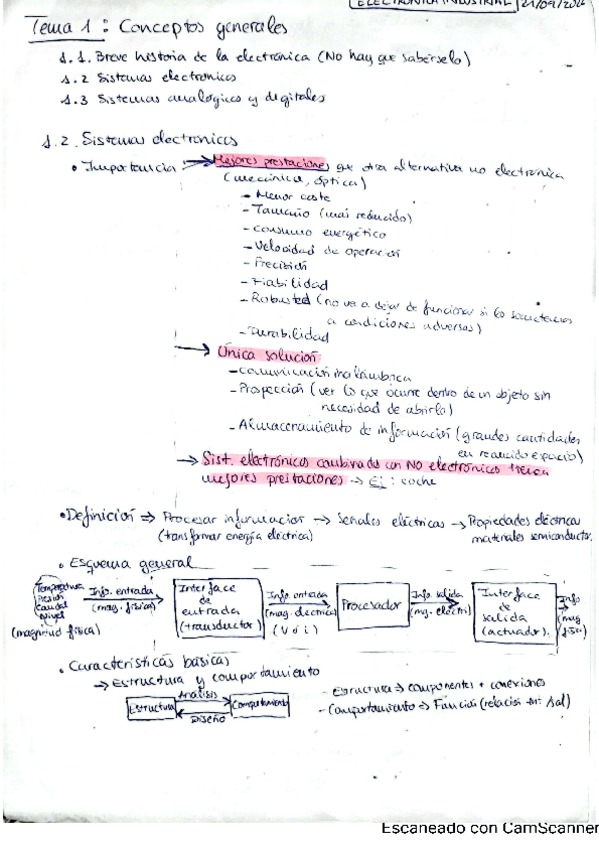 ELECTRÓNICA INDUSTRIAL
Tema 1: Conceptos generales
1.1. Breve historia de la electrónica (No hay que sabérselo)
1.2 Sistemas electrónicos
1.3 Sistemas analógicos y digitales
1.2. Sistemas electrónicos
• Importancia → Mejores prestaciones que otra alternativa no electrónica
(mecánica, óptica)
- Menor coste
- Tamaño (más reducido)
- Consumo energético
- Velocidad de operación
- Precisión
- Fiabilidad
- Robustez (no va a dejar de funcionar si lo sometemos
a condiciones adversas)
- Durabilidad
→ Única solución
- Comunicación inalámbrica
- Prospección (ver lo que ocurre dentro de un objeto sin
necesidad de abrirlo)
- Almacenamiento de información (grandes cantidades
en reducido espacio)
→ Sist. electrónicos combinados con NO electrónicos tienen
mejores prestaciones → Ej: coche
• Definición ⇒ Procesar información → Señales eléctricas → Propiedades eléctricas
(transformar energía eléctrica) materiales semiconductor.
• Esquema general
Temperatura
Presión
Caudal
Nivel
(magnitud física)
Info. entrada
(mag. física)
Interface
de
entrada
(transductor)
Info. entrada
(mag. eléctrica)
(V ó i)
Procesador
Info. salida
(mg. electri)
Interface
de
salida
(actuador).
Info
(mag
físic)
• Características básicas
→ Estructura y comportamiento
Estructura
Análisis
Diseño
Comportamiento
- Estructura ⇒ componentes + conexiones
- Comportamiento ⇒ Función (relación ent. sal)
Escaneado con CamScanner